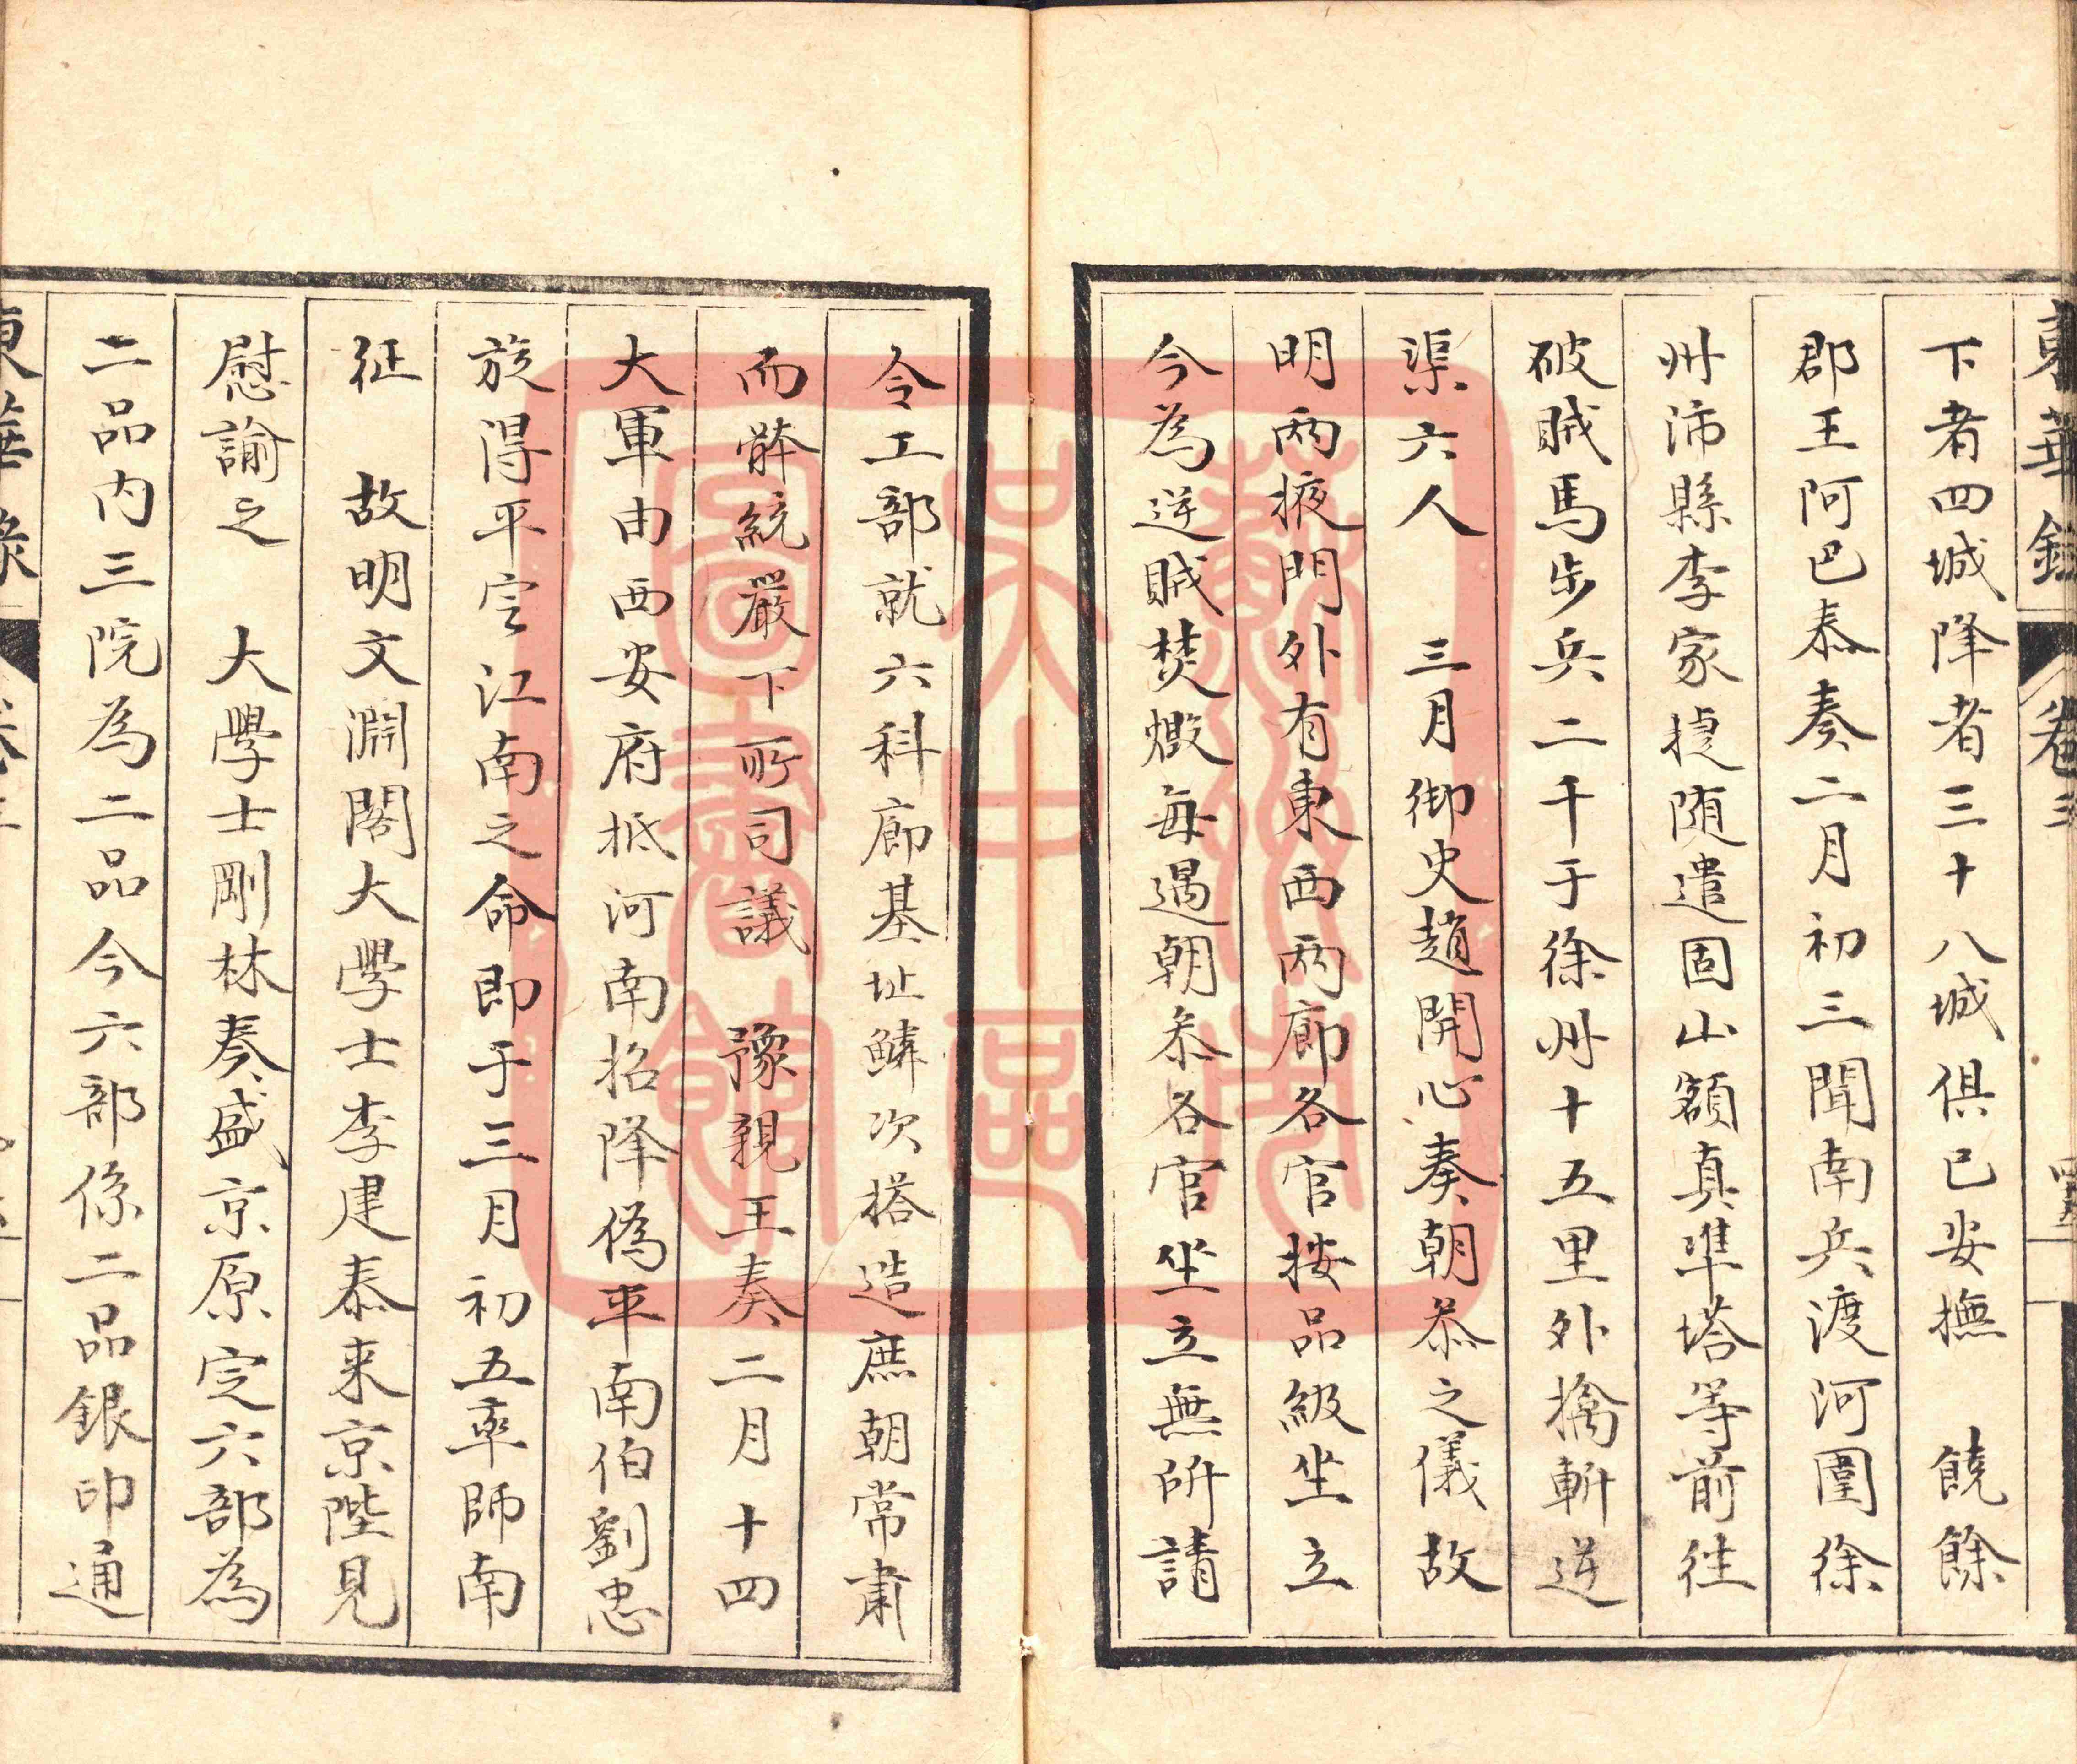 東華錄 卷三
下者四城降者三十八城俱已安撫 饒餘
郡王阿巴泰奏二月初三聞南兵渡河圍徐
州沛縣李家捷随遣固山額真準塔等前往
破賊馬步兵二千于徐州十五里外擒斬逆
渠六人 三月御史趙開心奏朝叅之儀故
明两掖門外有東西两廊各官按品級坐立
今為逆賊焚燬每遇朝叅各官坐立無所請
令工部就六科廊基址鱗次搭造庶朝常肅
而體統嚴下所司議 豫親王奏二月十四
大軍由西安府抵河南招降偽平南伯劉忠
旋得平定江南之命即于三月初五率師南
征 故明文淵閣大學士李建泰来京陛見
慰諭之 大學士剛林奏盛京原定六部為
二品内三院為二品今六部係二品銀印通
東華錄
蘇州市
吳中區
圖書館